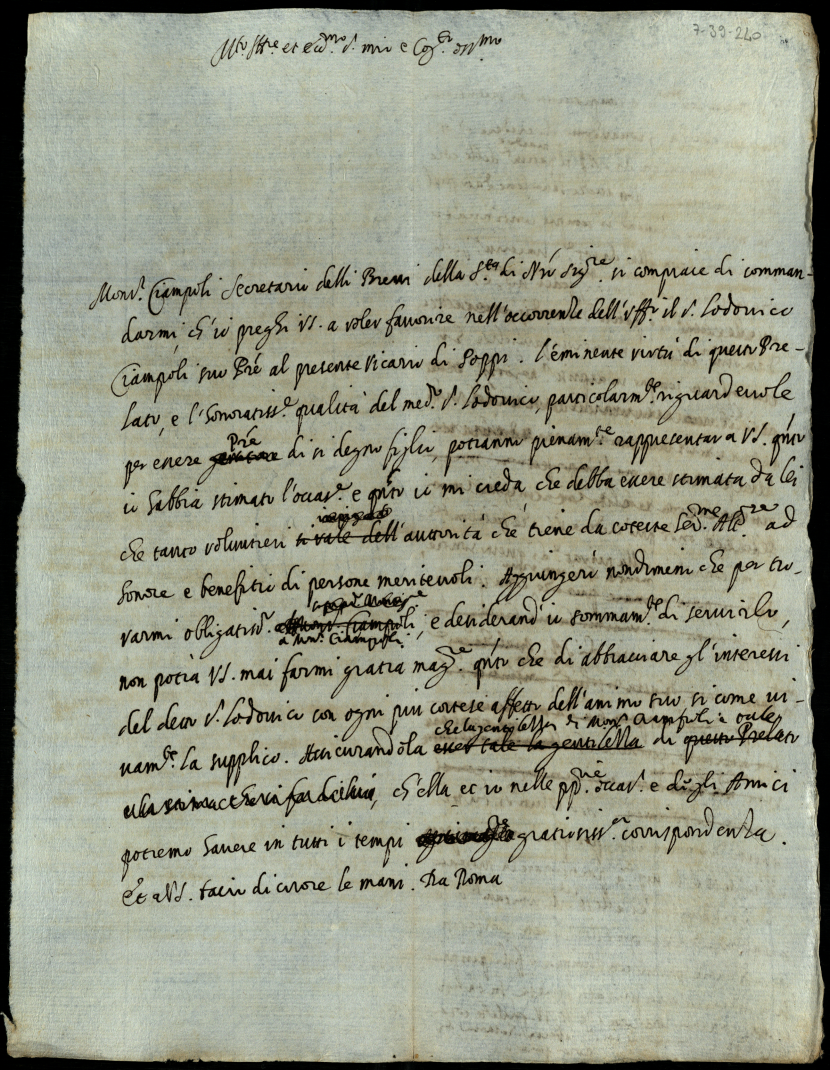 7-39-240
Ill.to Ill.re et ecc.mo S. mio e Co oss.mo
Mons.r Ciampoli Secretario delli Brevi della S.tà di N.ro Sig.re si compiace di comman-
darmi, ch'io preghi VS. a voler favorire nell'occorrenze dell'Uff.o il S. Lodovico
Ciampoli suo Pre al presente Vicario di Poppi. L'eminente virtù di questo Pre-
lato, e l'honoratiss.e qualità del med.o S. Lodovico, particolarm.te riguardevole
Pre
per essere genitore di si degno figlio, potranno pienam.te rappresentar a VS. q.nto
io habbia stimato l'occas.e e q.nto io mi creda che debba essere stimata da lei
impiegato
che tanto volontieri si vale dell'auttorità che tiene da coteste Ser.me Alt.ze ad
honore e benefitio di persone meritevoli. Aggiungerò nondimeno che per tro-
varmi obligatiss.o a Mons.r Ciampoli, e desiderand'io sommam.te di servirlo,
a Mons.r Ciampoli
non potrà VS. mai farmi gratia magg.re q.nto che di abbracciare gl'interessi
del detto S. Lodovico con ogni più cortese affetto dell'animo suo, si come vi-
che la gentilezza di Mons.r Ciampoli è tale
vam.te la supplico. Assicurandola esser tale la gentilezza di questo Prelato
ch'ella et io nelle pp.rie occas.i e degli Amici
potremo havere in tutti i tempi gratiosiss.a corrispondenza.
Et a VS. bacio di cuore le mani. Da Roma